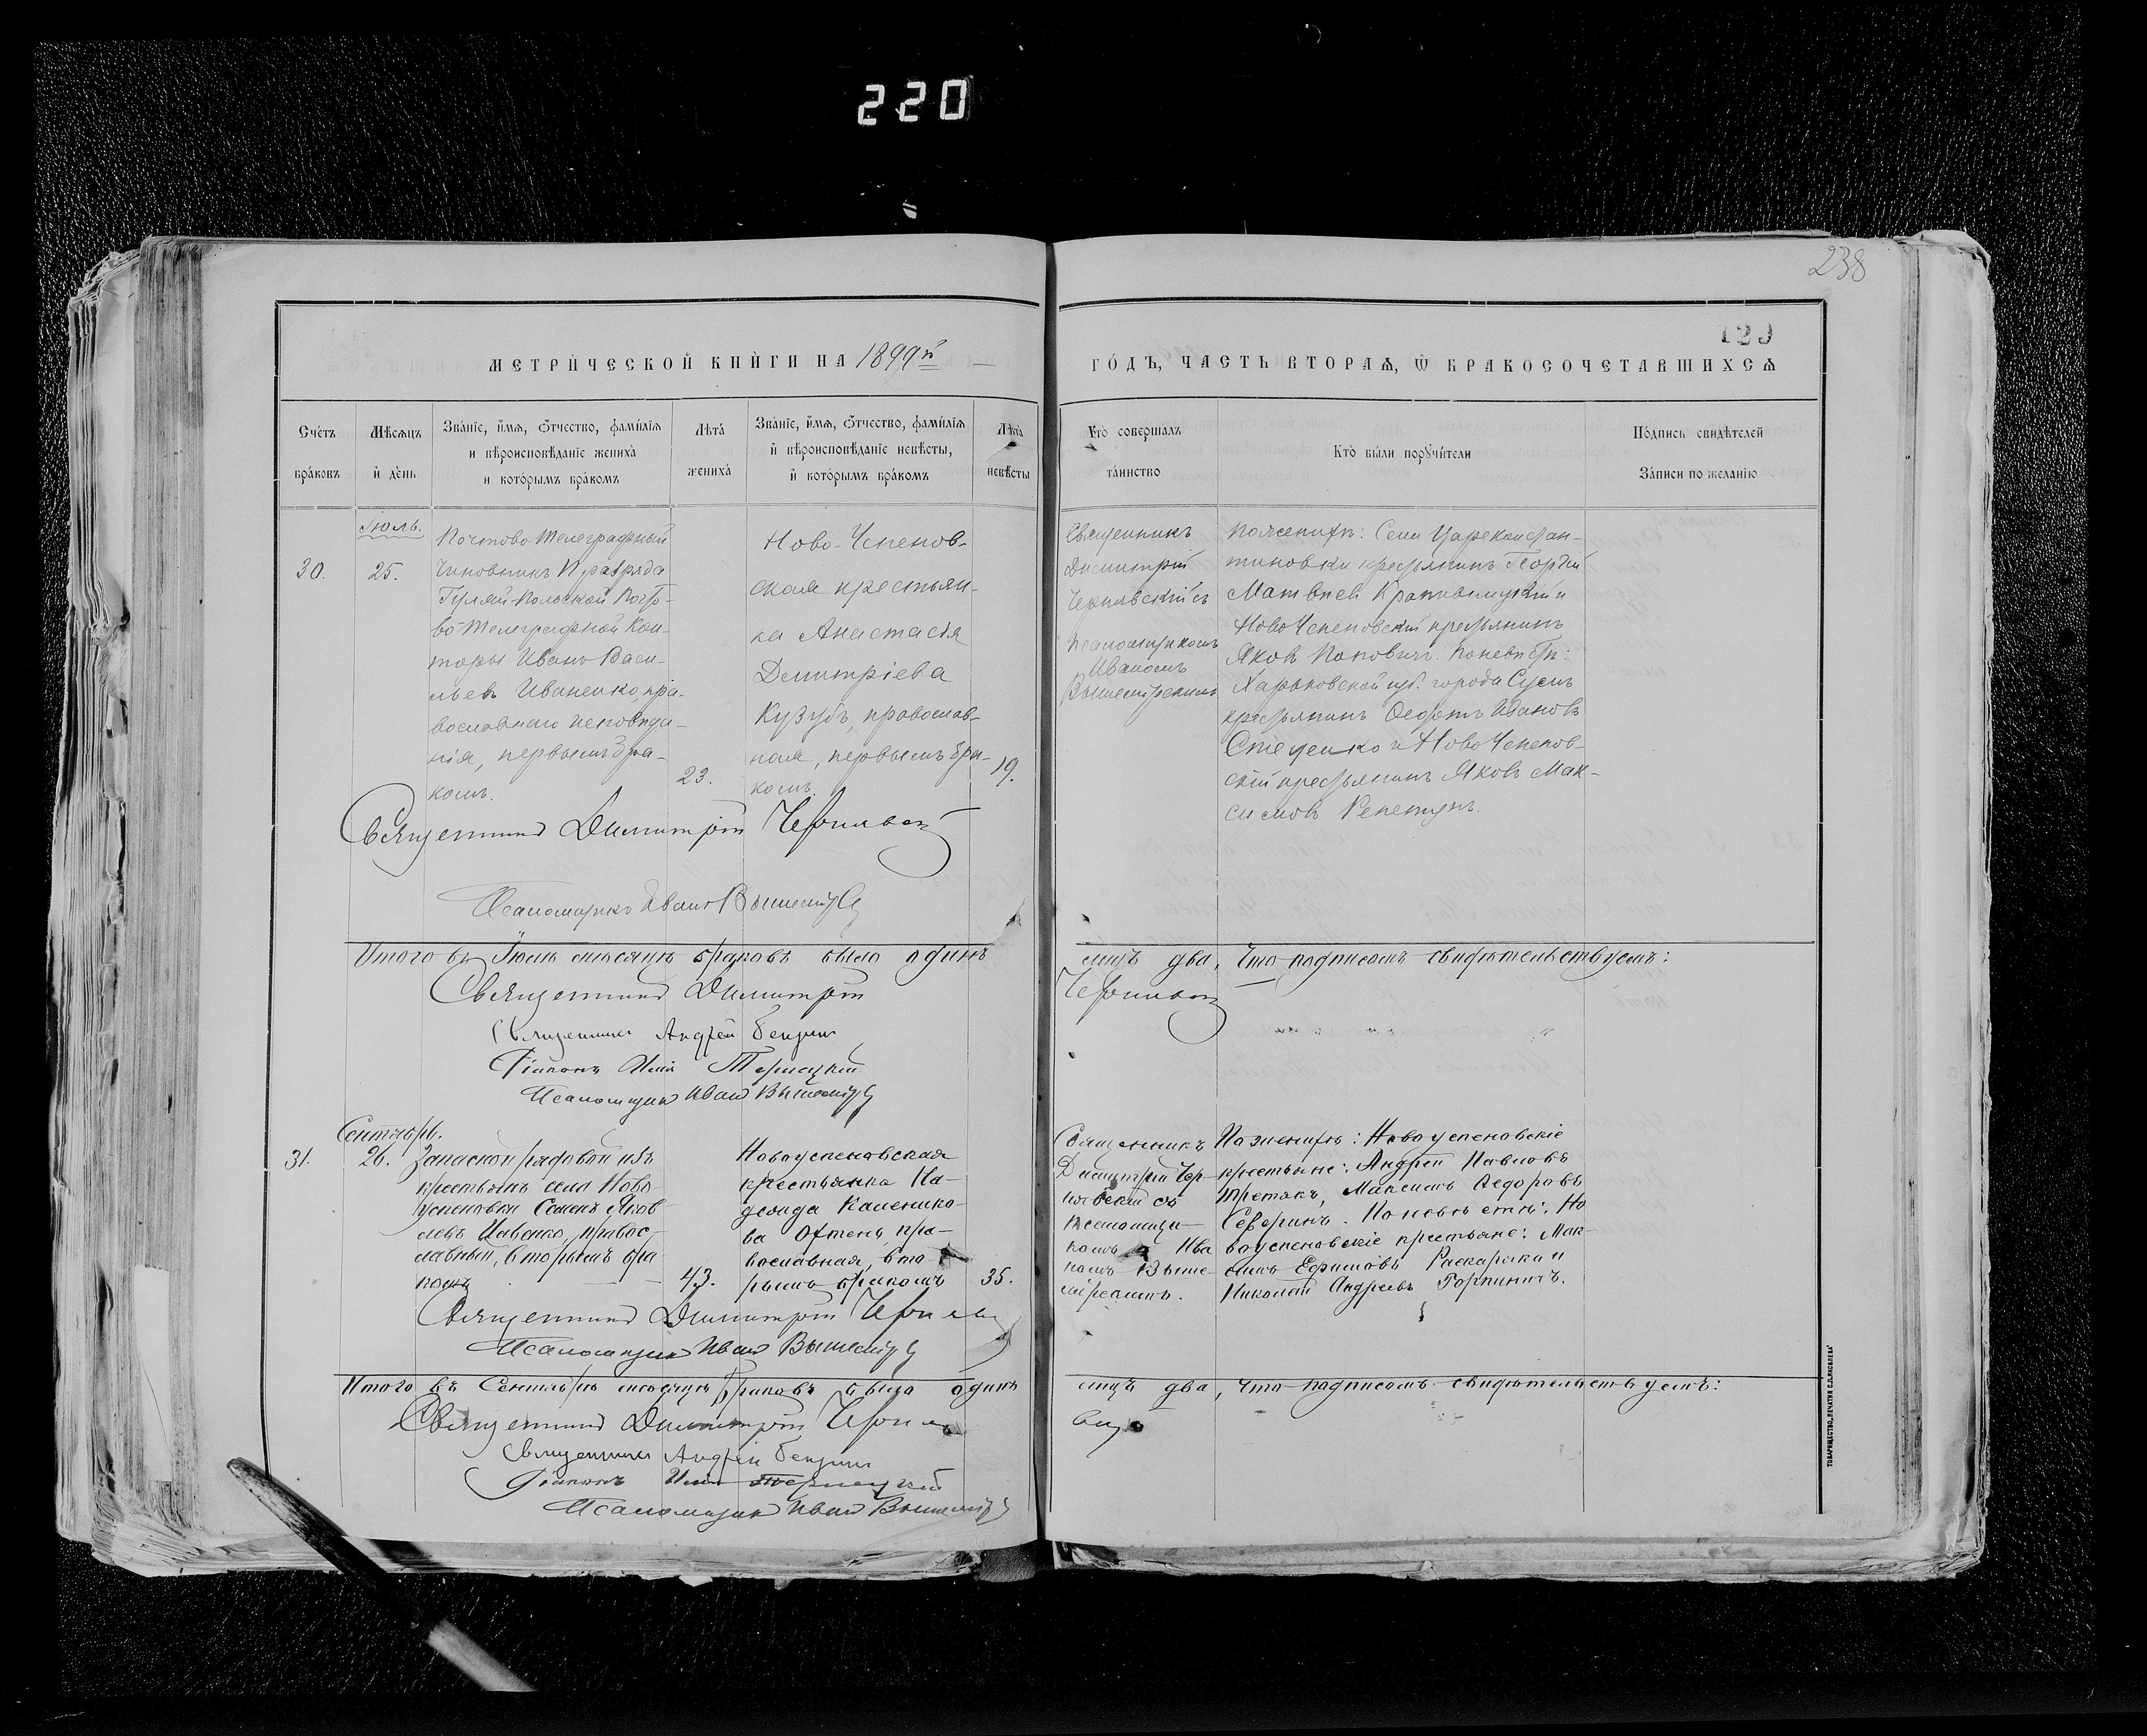 220
238
129
МЕТРИ́ЧЕСКОЙ КНИ́ГИ НА 1899й
ГО́ДЪ, ЧАСТЬ ВТОРАѦ, Ѿ БРАКОСОЧЕТАВШИХСѦ
Сче́тъ
бра́ковъ
Мѣ́сѧцъ
и҆ де́нь
Зва́нїе, и҆́мѧ, ѻ҆́тчество, фами́лїѧ
и вѣроисповѣ́данїе жениха̀
и кото́рымъ бра́комъ
Лѣта̀
жениха̀
Зва́нїе, и҆́мѧ, ѻ҆́тчество, фами́лїѧ
и҆ вѣроисповѣ́данїе невѣ́сты,
и҆ кото́рымъ бра́комъ
Лѣта̀
невѣ́сты
Кто̀ соверша́лъ
та́инство
Кто̀ бы́ли порꙋчи́тели
По́дпись свидѣ́телей
За́писи по жела́нїю
Іюль.
30.
25.
Почтово-Телеграфный
Чиновникъ V разряда
Гуляй-Польской Почто-
во-Телеграфной Кон-
торы Иванъ Васи-
льевъ Иваненко, пра-
вославнаго исповѣда-
нія, первымъ бра-
комъ.
23.
Ново-Успенов-
ская крестьян-
ка Анастасія
Димитріева
Кузубъ, православ-
ная, первымъ бра-
комъ.
19.
Священникъ
Димитрій
Чернявскій съ
псаломщикомъ
Иваномъ
Вышемірскимъ
По женихѣ: Села Цареконстан-
тиновки крестьянинъ Георгій
Матвѣевъ и
Ново Успеновскій крестьянинъ
Яковъ Поповичъ. По невѣстѣ:
Харьковской губ. города Сумъ
крестьянинъ Ѳедотъ Ивановъ
Стеценко и Ново Успенов-
скій крестьянинъ Яковъ Мак-
симовъ Репетунъ.
Священникъ Димитрій Чернявскій
Псаломщикъ Иванъ Вышемірскій
Итого въ Іюлѣ мѣсяцѣ браковъ было одинъ
лицъ два, что подписомъ свидѣтельствуемъ:
Священникъ Димитрій
Чернявскій
Священникъ Андрей
Діаконъ Илія
Псаломщикъ Иванъ Вышемірскій
Сентябрь.
31.
26.
Запасной рядовой изъ
крестьянъ села Ново-
успеновки Семенъ Яков-
левъ Ивченко, правос-
лавный, вторымъ бра
комъ
43.
Новоуспеновская
крестьянка На-
дежда Каленико-
ва Охтень, пра-
вославная, вто-
рымъ бракомъ
35.
Священникъ
Димитрій Чер-
нявскій съ
псаломщи-
комъ Ива
номъ Выше-
мірскимъ.
По женихѣ: Новоуспеновскіе
крестьяне: Андрей Павловъ
Третякъ, Максимъ Ѳедоровъ
Северинъ. По невѣстѣ: Но
воуспеновскіе крестьяне: Мак-
симъ Ефимовъ и
Николай Андреевъ Горпиничъ.
Священникъ Димитрій Чернявскій
Псаломщикъ Иванъ Вышемірскій
Итого въ Сентябрѣ мѣсяцѣ браковъ было одинъ
лицъ два, что подписомъ свидѣтельствуемъ:
Священникъ Димитрій Черняв
скій
Священникъ Андрей
Діаконъ Илія
Псаломщикъ Иванъ Вышемірскій